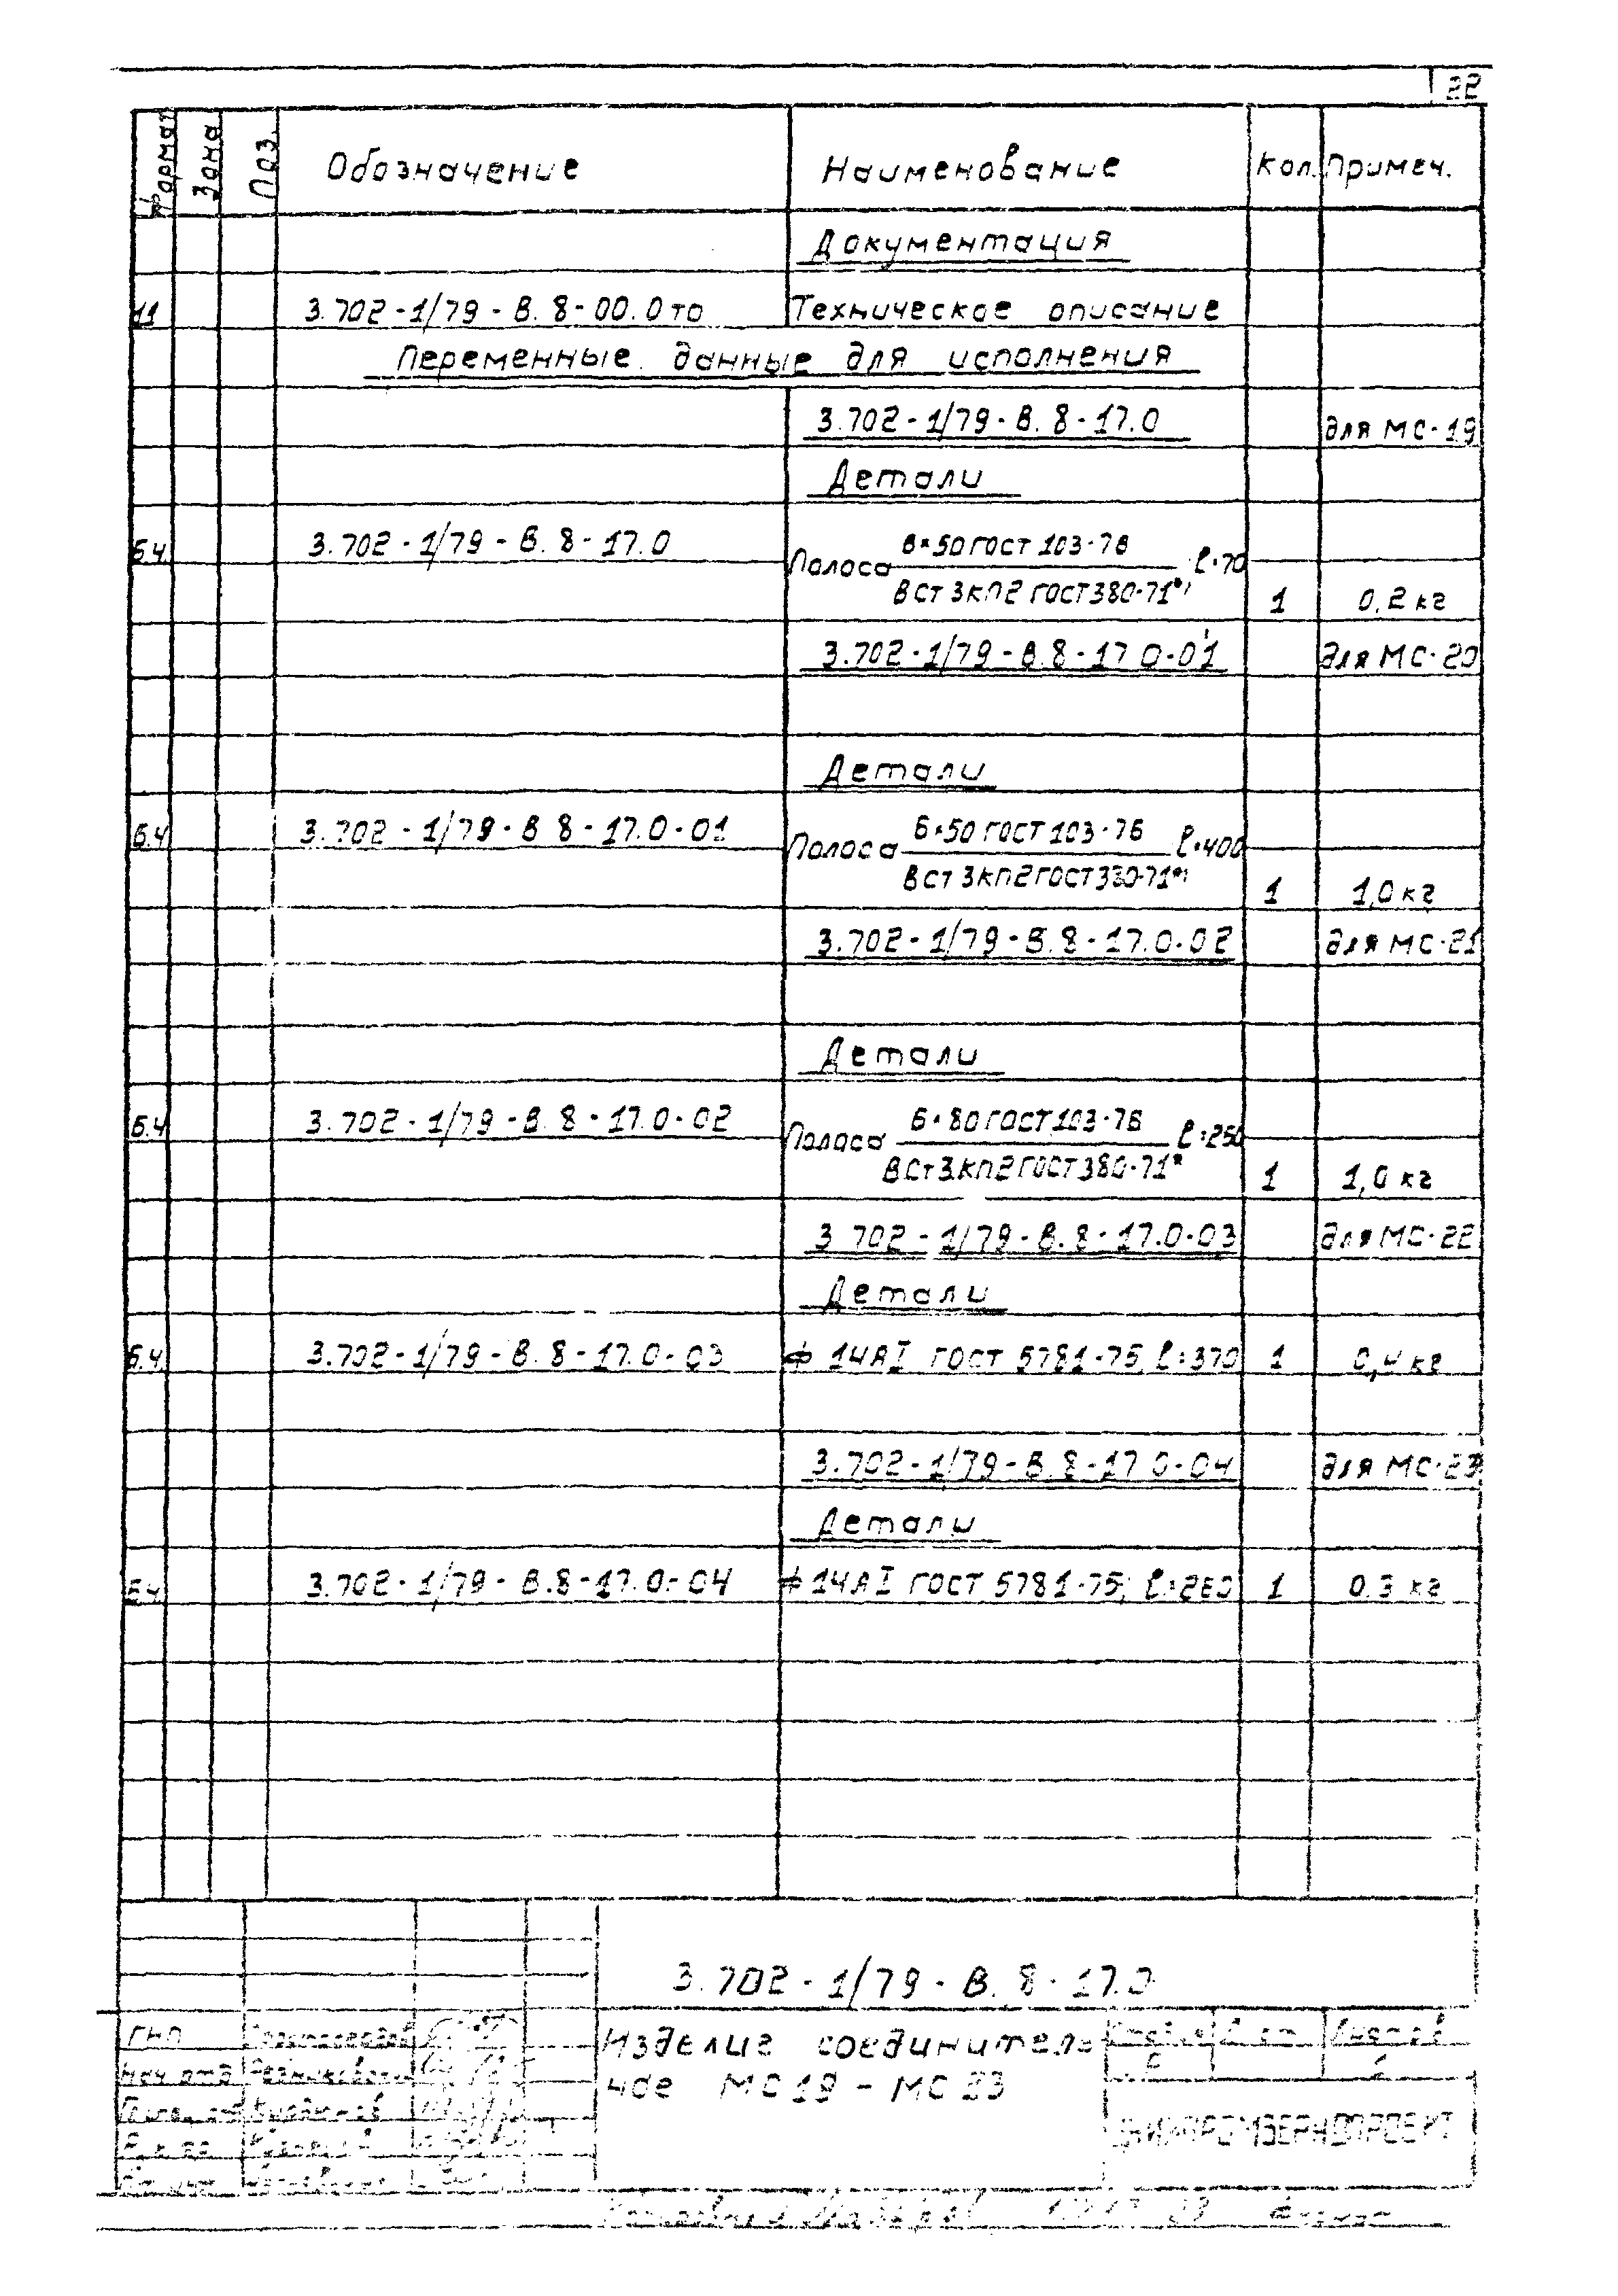 22
Формат Зона Поз. Обозначение Наименование Кол. Примеч.
Документация
11 3.702-1/79-В.8-00.0ТО Техническое описание
Переменные данные для исполнения
3.702-1/79-В.8-17.0 для МС-19
Детали
Б.Ч. 3.702-1/79-В.8-17.0 Полоса 6×50 ГОСТ 103-76 ℓ=70
ВСт3кп2 ГОСТ 380-71* 1 0,2 кг
3.702-1/79-В.8-17.0-01 для МС-20
Детали
Б.Ч. 3.702-1/79-В.8-17.0-01 Полоса 6×50 ГОСТ 103-76 ℓ=400
ВСт3кп2 ГОСТ 380-71* 1 1,0 кг
3.702-1/79-В.8-17.0-02 для МС-21
Детали
Б.Ч. 3.702-1/79-В.8-17.0-02 Полоса 6×80 ГОСТ 103-76 ℓ=250
ВСт3кп2 ГОСТ 380-71* 1 1,0 кг
3.702-1/79-В.8-17.0-03 для МС-22
Детали
Б.Ч. 3.702-1/79-В.8-17.0-03 ф 14АI ГОСТ 5781-75, ℓ=370 1 0,4 кг
3.702-1/79-В.8-17.0-04 для МС-23
Детали
Б.Ч. 3.702-1/79-В.8-17.0-04 ф 14АI ГОСТ 5781-75; ℓ=260 1 0.3 кг
3.702-1/79-В.8-17.0
ГИП
Нач. отд.
Изделие соединитель
ное МС19-МС23
Стадия Лист Листов
Р
ЦНИИПРОМЗЕРНОПРОЕКТ
Копировал Формат